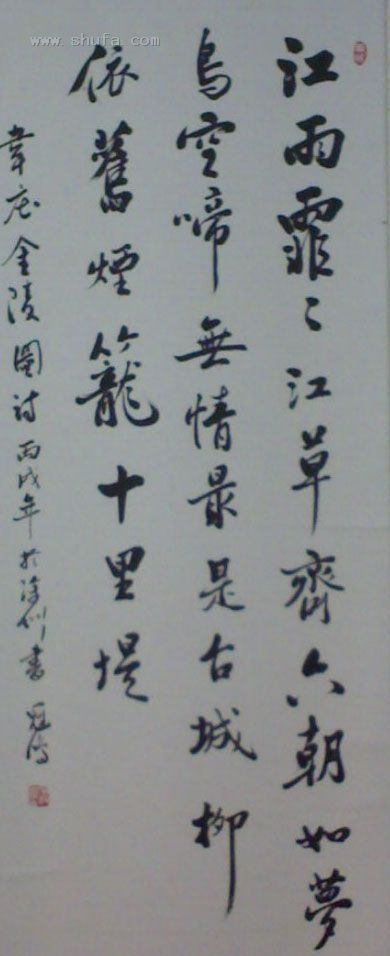 江雨霏〻江草齊六朝如夢
鳥空啼無情最是古城柳
依舊煙籠十里堤
韋莊金陵圖詩丙戌年於徐州書
www.shufa.com